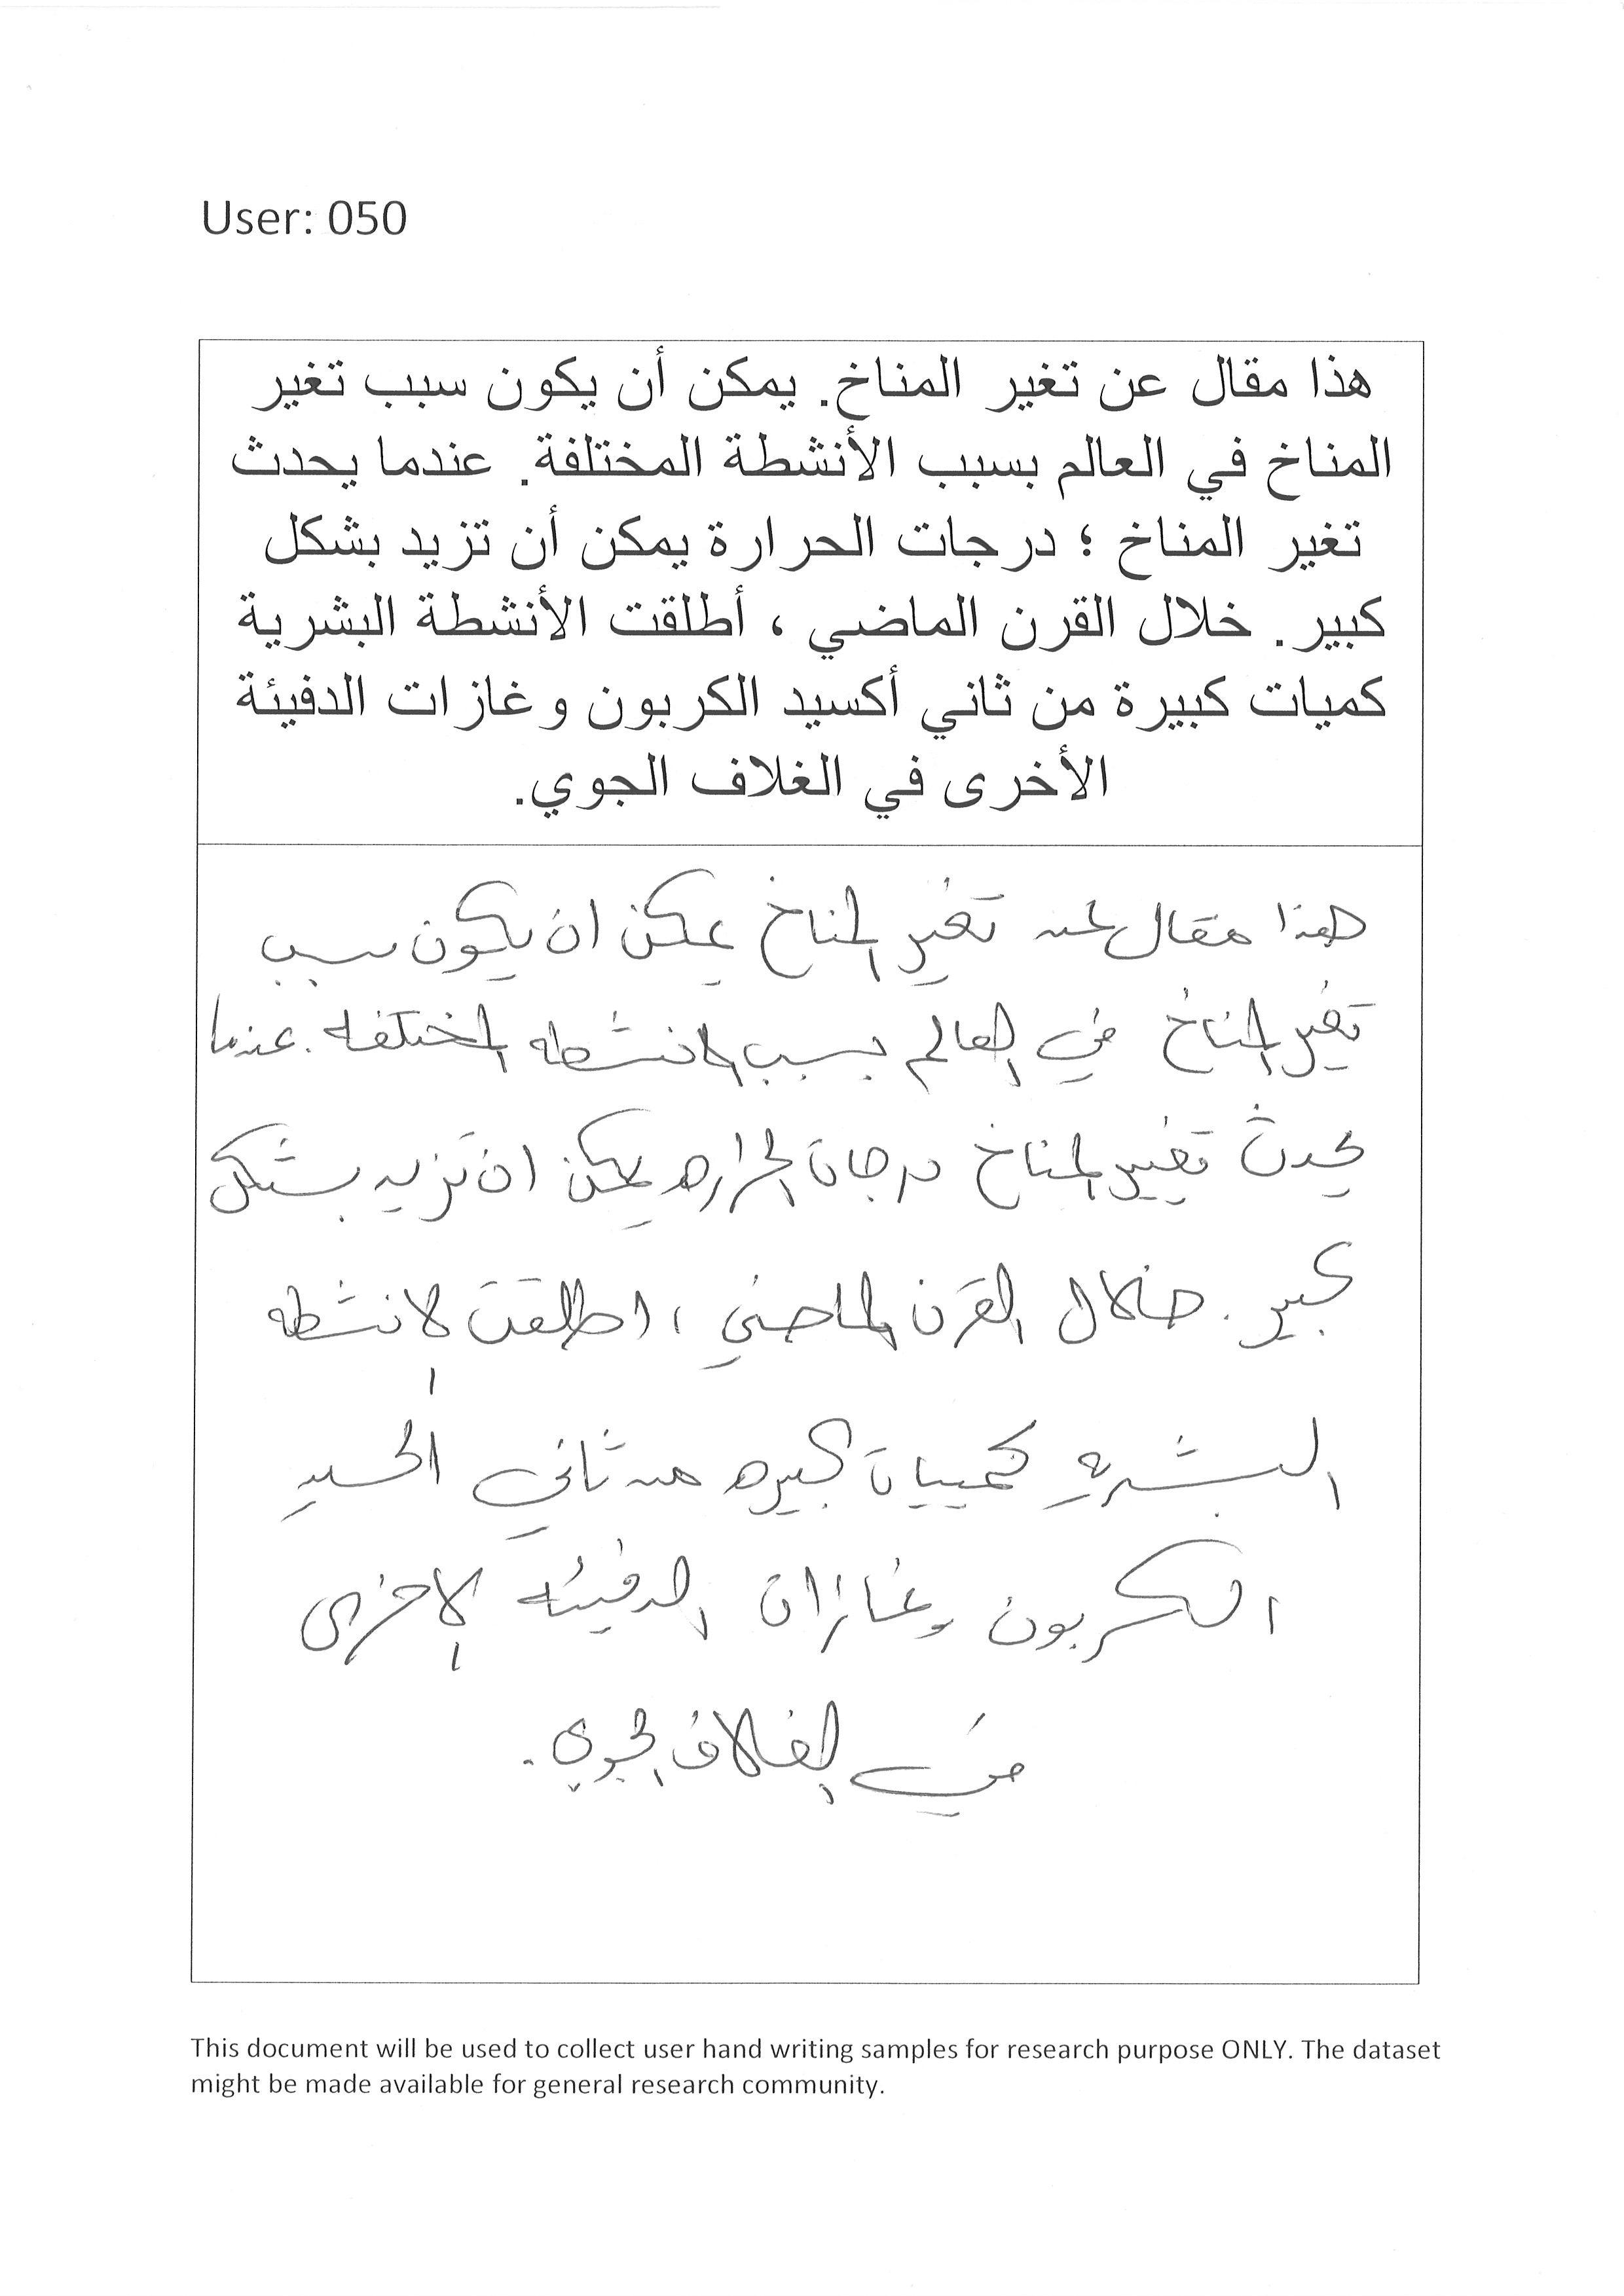 User: 050
هذا مقال عن تغير المناخ. يمكن أن يكون سبب تغير
المناخ في العالم بسبب الأنشطة المختلفة. عندما يحدث
تغير المناخ ؛ درجات الحرارة يمكن أن تزيد بشكل
كبير. خلال القرن الماضي ، أطلقت الأنشطة البشرية
كميات كبيرة من ثاني أكسيد الكربون وغازات الدفيئة
الأخرى في الغلاف الجوي.
هذا مقال عن تغير المناخ يمكن ان يكون سبب
تغير المناخ في العالم بسبب الانشطه المختلفه . عندما
يحدث تغيير المناخ درجات الحراره يمكن ان تزيد بشكل
كبير . خلال القرن الماضي ، اطلقت الانشطه
البشريه كمييات كبيره من ثاني اكسيد
الكربون وغازات الدفيئه الاخرى
في الغلاف الجوي .
This document will be used to collect user hand writing samples for research purpose ONLY. The dataset
might be made available for general research community.